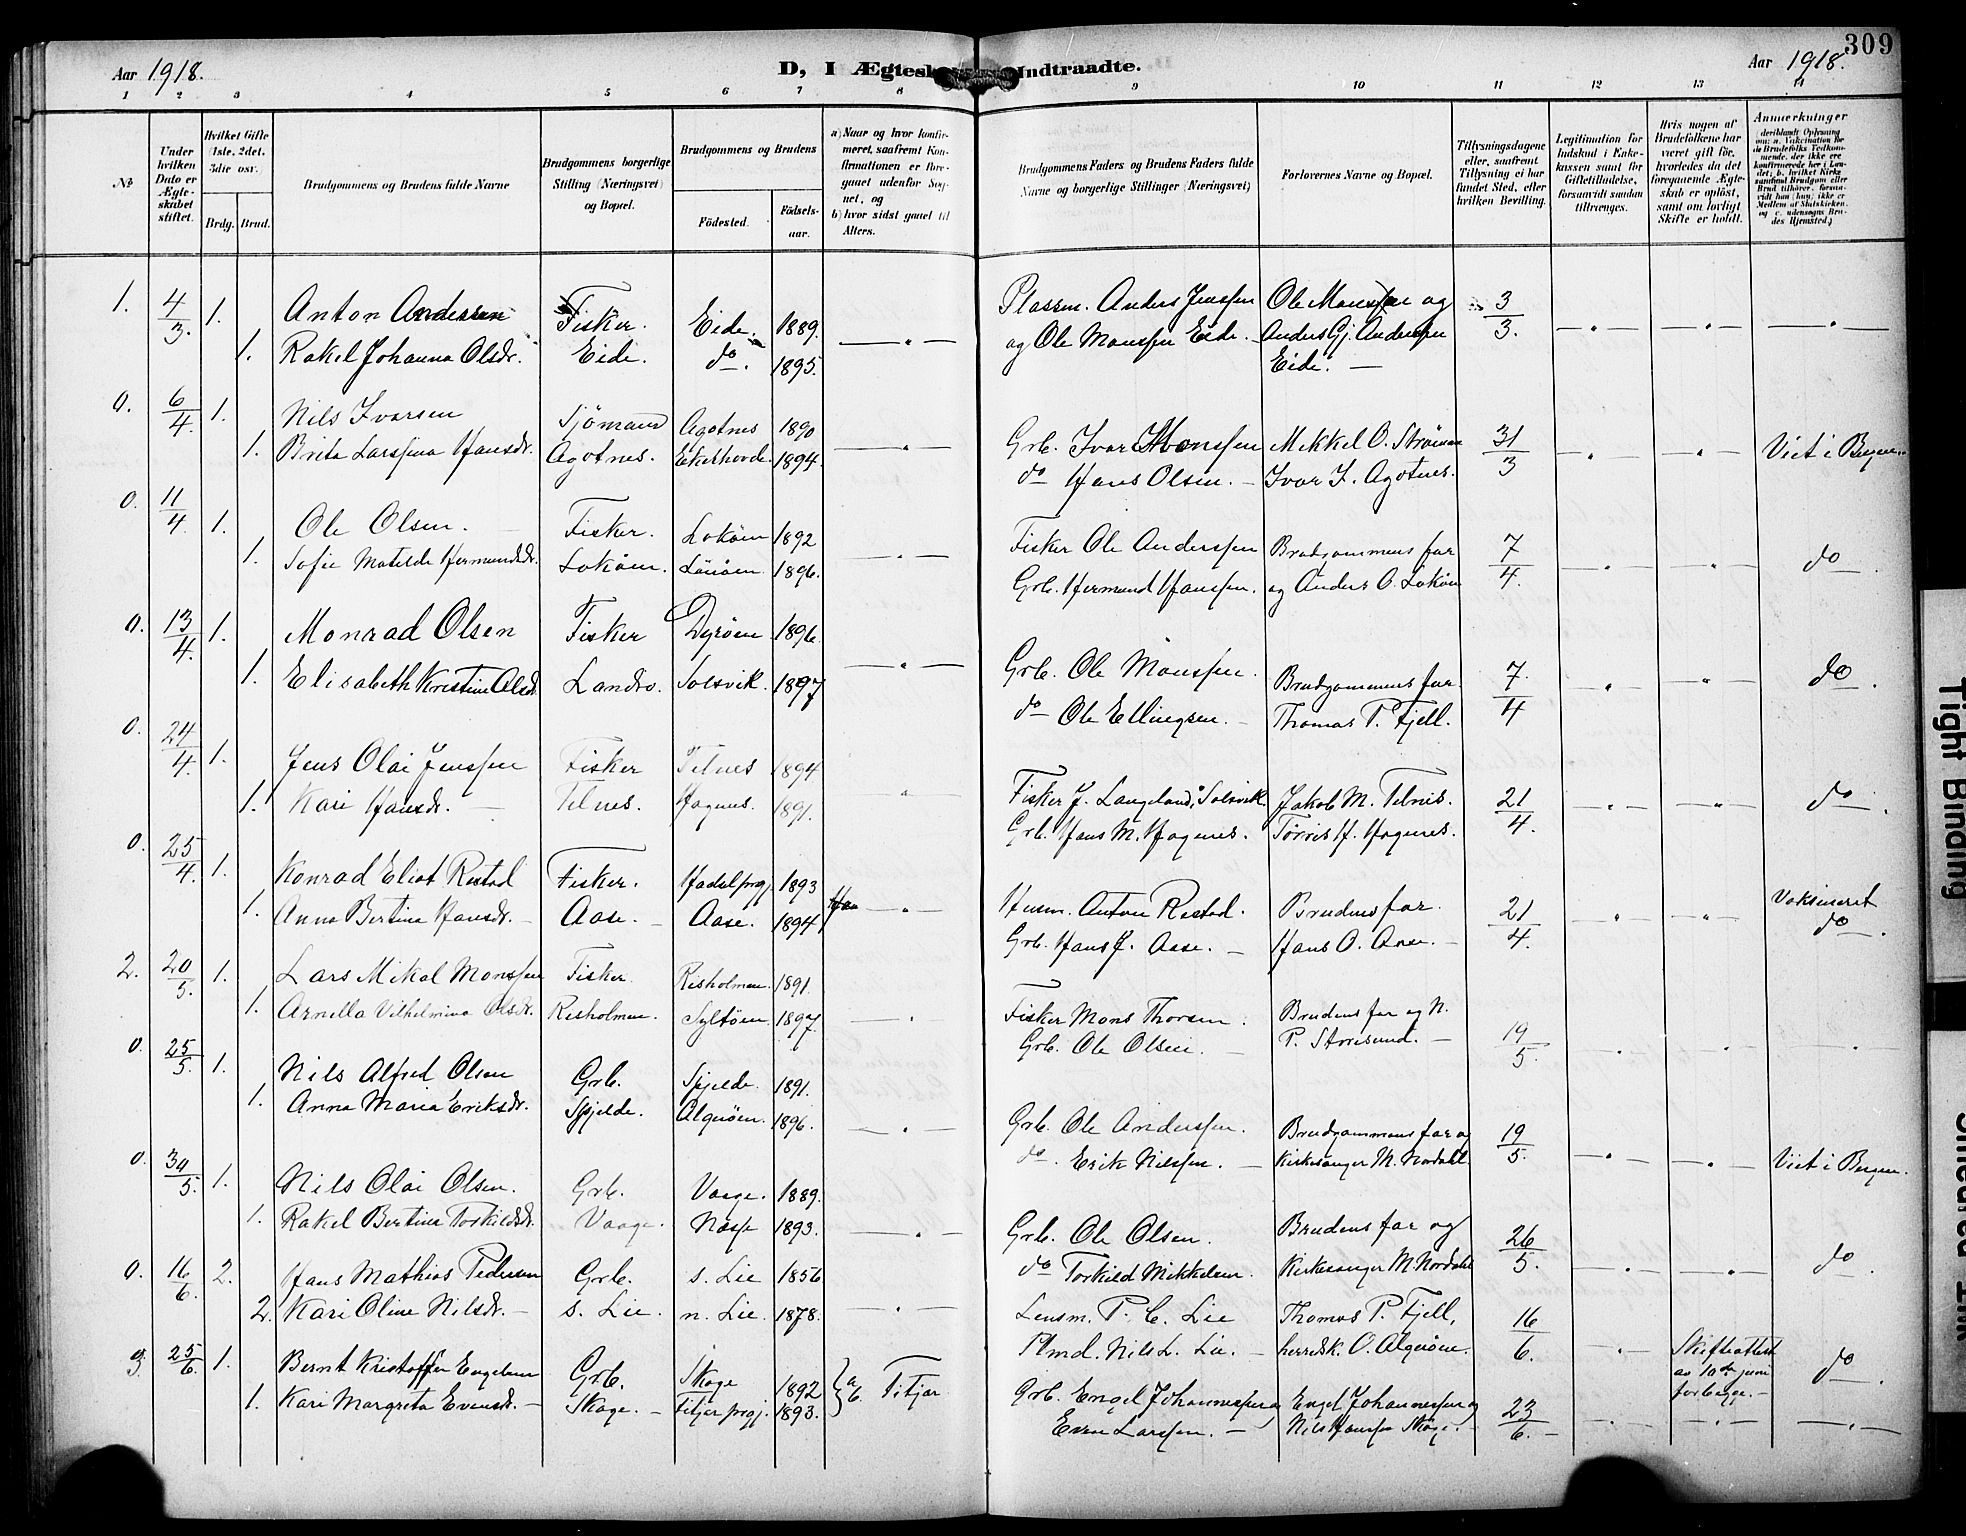 309
Aar 1918.
D, I Ægtesk Indtraadte.
Aar 1918.
1 2 3 4 5 6 7 8 9 10 11 12 13 14
No
Under hvilken Dato er Ægteskabet stiftet.
Hvilket Gifte (1ste, 2det, 3die osv.
Brdg. Brud.
Brudgommens og Brudens fulde Navne
Brudgommens borgerlige Stilling (Næringsvei) og Bopæl.
Brudgommens og Brudens
Födested. Födselsaar.
a) Naar og hvor konfirmeret, saafremt Konfirmationen er foregaaet udenfor Sognet, og
b) hvor sidst gaaet til Alters.
Brudgommens Faders og Brudens Faders fulde Navne og borgerlige Stillinger (Næringsvei)
Forlovernes Navne og Bopæl.
Tillysningsdagene eller, saafremt Tillysning ei har fundet Sted, efter hvilken Bevilling.
Legitimation for Indskud i Enkekassen samt for Giftetilladelse, forsaavidt saadan tiltrænges.
Hvis nogen af Brudefolkene har været gift för, hvorledes da det foregaaende Ægteskab er oplöst, samt om lovligt Skifte er holdt.
Anmærkninger
(deriblandt Oplysning om: a. Vakcination for de Brudefolks Vedkommende, der ikke ere konfirmerede her i Landet; b. hvilket Kirkesamfund Brudgom eller Brud tilhører, forsaavidt han (hun) ikke er Medlem af Statskirken, og c. udensogns Brudes Hjemsted.)
1. 4/3. 1. Anton Anderssen Fisker. Eide. 1889. Plassm. Anders Jenssen Ole Monssen og 3/3.
1. Rakel Johanna Olsdr. Eide. do. 1895. og Ole Monssen Eide. Anders Gj. Anderssen
Eide.
0. 6/4. 1. Nils Ivarsen Sjömand Agotnes 1890 Grb. Ivar Monssen Mikkel O. Ströme 31/3 Viet i Bergen.
1. Brita Larsina Hansdr. Agotnes. Ekerhovde. 1894. do Hans Olsen. Ivar I. Agotnes.
0. 11/4 1. Ole Olsen. Fisker. Loköen 1892 Fisker Ole Anderssen Brudgommens far 7/4. do
1. Sofie Matilde Hermundsdr. Loköen. 1896. Grb. Hermund Hanssen. og Anders O. Loköen
0. 13/4. 1. Monrad Olsen Fisker Dyröen 1896. Grb. Ole Monssen. Brudgommens far 7/4 do.
1. Elisabeth Kristine Olsdr. Landro. Solsvik. 1897 do Ole Ellingsen. Thomas P. Fjell.
0. 24/4. 1. Jens Olai Jenssen Fisker Telnes 1894 Fisker J. Langeland, Solsvik. Jakob M. Telnes. 21/4. do
1. Kari Hansdr. Telnes. Hagnes. 1891. Grb. Hans M. Hagenes. Törris H. Hagenes.
0. 25/4. 1. Konrad Eliot Restad Fisker. Hadsel prgj. 1893 Husm. Anton Restad. Brudens far. 21/4. Vaksineret
1. Anna Bertina Hansdr. Aase. Aase. 1894 Grb. Hans J. Aase. Hans O. Aase. do.
2. 20/5. 1. Lars Mikal Monssen Fisker. Risholmen. 1891. Fisker Mons Thorsen. Brudens far og N. 19/5.
1. Arnella Vilhelmina Olsdr. Risholmen. Syltöen. 1897. Grb. Ole Olsen. P. Storesund.
0. 25/5. 1. Nils Alfred Olsen Grb. Spjelde. 1891. Grb. Ole Anderssen. Brudgommens far og 19/5. Viet i Bergen.
1. Anna Maria Eriksdr. Spjelde. Algröen. 1896. do. Erik Nilssen. Kirkesanger M. Nordahl.
0. 30/5. 1. Nils Olai Olsen. Grb. Vaage. 1889. Grb. Ole Olsen. Brudens far og 26/5. do
1. Rakel Bertina Torkildsdr. Vaage. Næsse 1893. do Torkild Mikkelsen. Kirkesanger M. Nordahl
0. 16/6. 2. Hans Mathias Pedersen Grb. s. Lie 1856 Lensm. P. C. Lie Thomas P. Fjell, 16/6. Skifteattest av 10de juni forbeger.
2. Kari Oline Nilsdr. s. Lie. n. Lie. 1878. Plmd. Nils L. Lie. herredsk. O. Algröen. do.
3. 25/6. 1. Bernt Kristoffer Engelsen Grb. Skoge 1892 a b. Fitjar Grb. Engel Johannessen og Engel Johannessen og 23/6.
1. Kari Margreta Evensdr. Skoge. Fitjar prgj. 1893. Even Larssen. Nils Hanssen Skoge.
Tight Binding